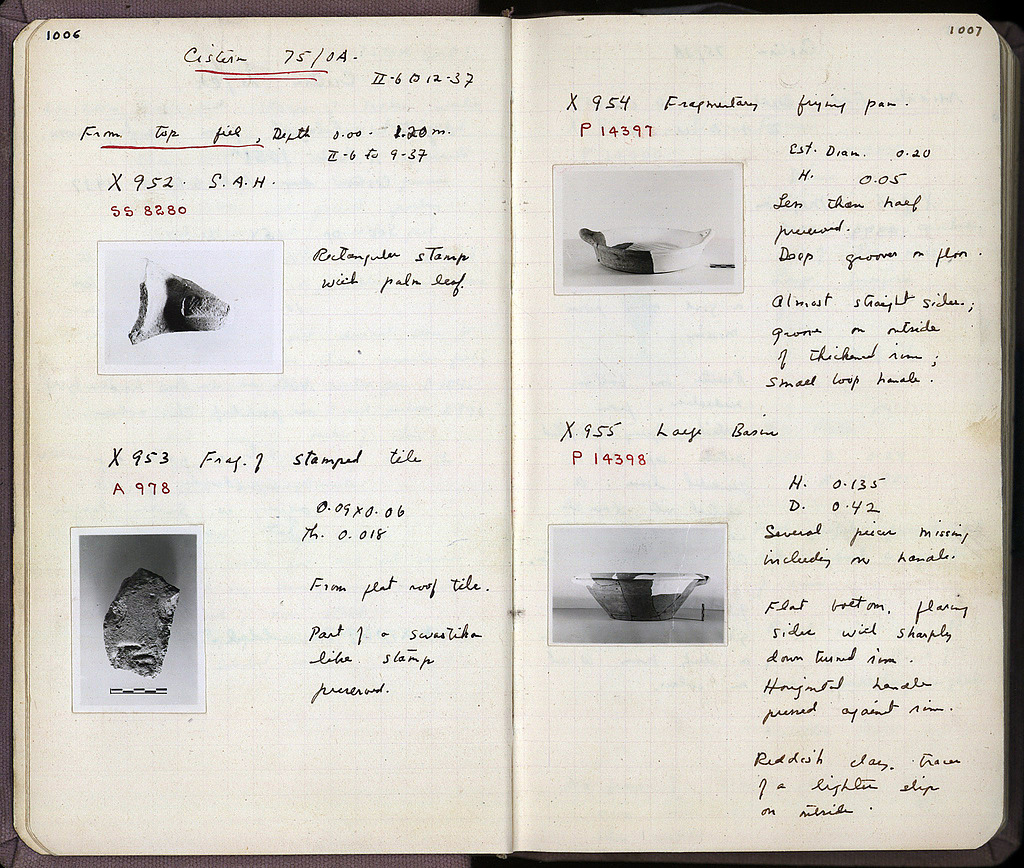 1006
Cistern 75/OA.
II-6 to 12-37
From top fill, Depth 0.00 - 1.20 m.
II-6 to 9-37
X 952. S.A.H.
SS 8280
Rectangular stamp
with palm leaf.
X 953 Frag. of stamped tile
A 978
0.09 x 0.06
Th. 0.018
From flat roof tile.
Part of a swastika
like stamp
preserved.
1007
X 954 Fragmentary frying pan.
P 14397
Est. Diam. 0.20
H. 0.05
Less than half
preserved.
Deep grooves on floor.
Almost straight sides;
groove on outside
of thickened rim;
small loop handle.
X 955 Large Basin
P 14398
H. 0.135
D. 0.42
Several pieces missing
including one handle.
Flat bottom, flaring
sides with sharply
down turned rim.
Horizontal handle
pressed against rim.
Reddish clay, traces
of a lighter slip
on outside.